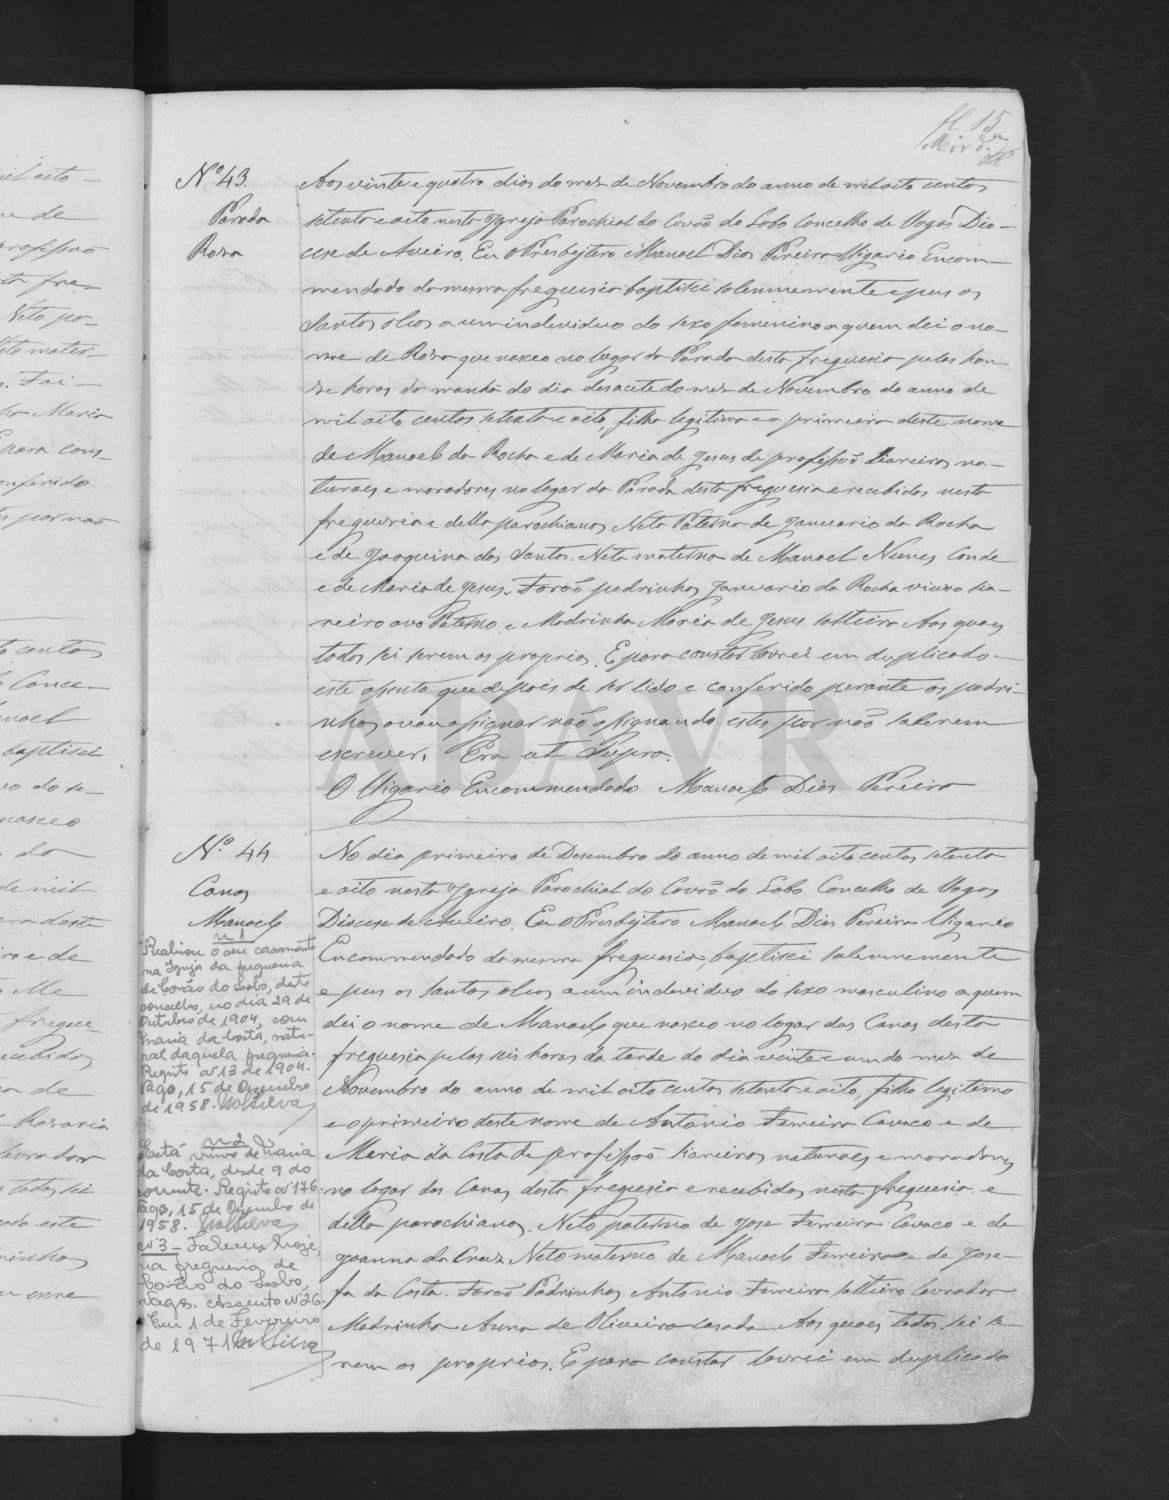 fl 15
Nº 43.
Parada
Rosa
Aos vinte e quatro dias do mez de Novembro do anno de mil oito centos
setenta e oito nesta Igreja Parochial do Covaõ do Lobo Concelho de Vagos Dio-
cese de Aveiro. Eu o Presbytero Manoel Dias Pereira Vigario Encom-
mendado da mesma freguesia baptisei solemnemente e pus os
Santos oleos a um indeviduo do sexo femenino a quem dei o no-
me de Rosa que nasceo no logar da Parada desta freguesia pelas hon-
ze horas da manhã do dia desacete do mez de Novembro do anno de
mil oito centos setenta e oito, filha legitima e a primeira deste nome
de Manoel da Rocha e de Maria de Jesus de profissaõ Siareiros na-
turaes e moradores no logar da Parada desta freguesia e recebidos nesta
freguesia e della parochianos Neta Paterna de Januario da Rocha
e de Joaquina dos Santos. Neta materna de Manoel Nunes Conde
e de Maria de Jesus. Foraõ padrinhos Januario da Rocha viuvo sia-
reiro avo Paterno e Madrinha Maria de Jesus solteira Aos quaes
todos sei serem os proprios. E para constar lavrei em duplicado
este assento que depois de ser lido e conferido perante os padri-
nhos o vou assignar naõ assignando estes por naõ saberem
escrever. Era ut Supra.
O Vigario Encommendado Manoel Dias Pereira
Nº 44
Canas
Manoel
No dia primeiro de Desembro do anno de mil oito centos setenta
e oito nesta Igreja Parochial do Covaõ do Lobo Concelho de Vagos
Diocese de Aveiro. Eu o Presbytero Manoel Dias Pereira Vigario
Encommendado da mesma freguesia, baptisei solemnemente
e pus os santos oleos a um indeviduo do sexo masculino a quem
dei o nome de Manoel que nasceo no logar das Canas desta
freguesia pelas seis horas da tarde do dia vinte e um do mez de
Novembro do anno de mil oito centos setenta e oito, filho legitimo
e o primeiro deste nome de Antonio Ferreira Cavaco e de
Maria da Costa de profissaõ siareiros naturaes e moradores
no logar das Canas desta freguesia e recebidos nesta freguesia e
della parochianos, Neto paterno de Jose Ferreira Cavaco e de
Joanna da Cruz Neto materno de Manoel Ferreira e de Jose-
fa da Costa. Foraõ Padrinhos Antonio Ferreira solteiro lavrador
Madrinha Anna de Oliveira casada Aos quaes todos sei se-
rem os proprios. E para constar lavrei em duplicado
nº 1
Realizou o seu casamento
na Igreja da freguesia
de Covão do Lobo, deste
concelho, no dia 29 de
Outubro de 1904, com
Maria da Costa, natu-
ral daquela freguesia.
Registo nº 13 de 1904.
Vagos, 15 de Dezembro
de 1958.
nº 2
Está viuvo de Maria
da Costa, desde 9 do
corrente. Registo nº 176.
Vagos, 15 de Dezembro de
1958.
nº 3 - Faleceu hoje,
na freguesia de
Covão do Lobo,
Vagos. Assento nº 26.
Em 1 de Fevereiro
de 1971
ADAVR